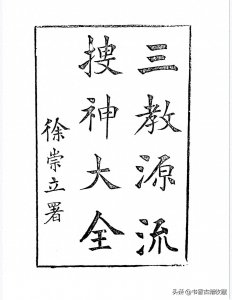 三教源流
搜神大全
徐崇立署
头条@书蒙古籍收藏